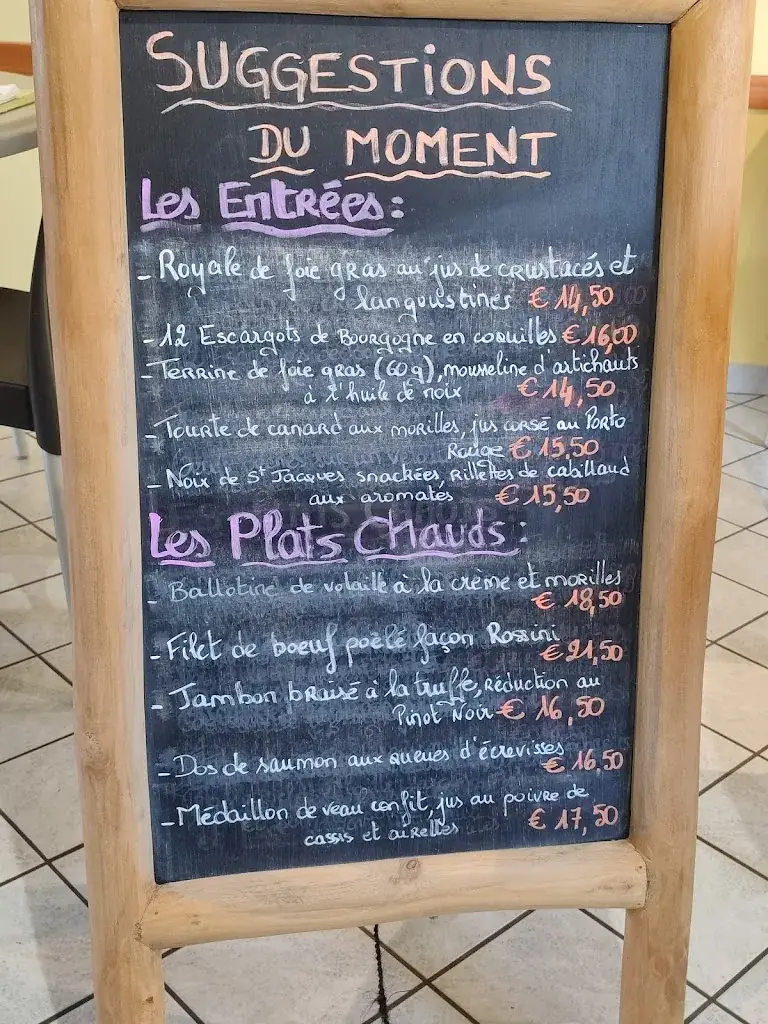 SUGGESTIONS
DU MOMENT
Les Entrées :
- Royale de foie gras au jus de crustacés et
langoustines € 14,50
- 12 Escargots de Bourgogne en coquilles € 16,00
- Terrine de foie gras (60g), mousseline d'artichauts
à l'huile de noix € 14,50
- Tourte de canard aux morilles, jus corsé au Porto
Rouge € 15,50
- Noix de St Jacques snackées, rillettes de cabillaud
aux aromates € 15,50
Les Plats Chauds :
- Ballotine de volaille à la crème et morilles
€ 18,50
- Filet de boeuf poêlé façon Rossini
€ 21,50
- Jambon braisé à la truffe, réduction au
Pinot Noir € 16,50
- Dos de saumon aux queues d'écrevisses
€ 16,50
- Médaillon de veau confit, jus au poivre de
cassis et airelles € 17,50